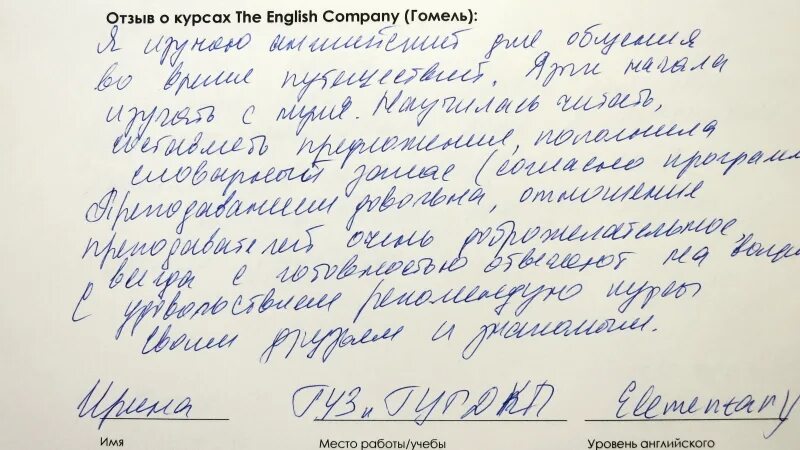 Отзыв о курсах The English Company (Гомель):
Я изучаю английский для общения
во время путешествий. Язык начала
изучать с нуля. Научилась читать,
составлять предложения, пополнила
словарный запас (согласно програм
Преподаванием довольна, отношение
преподавателей очень доброжелательное
всегда с готовностью отвечают на
С удовольствием рекомендую курсы
своим друзьям и знакомым.
Ирина ГУЗ Elementary
Имя Место работы/учебы Уровень английского